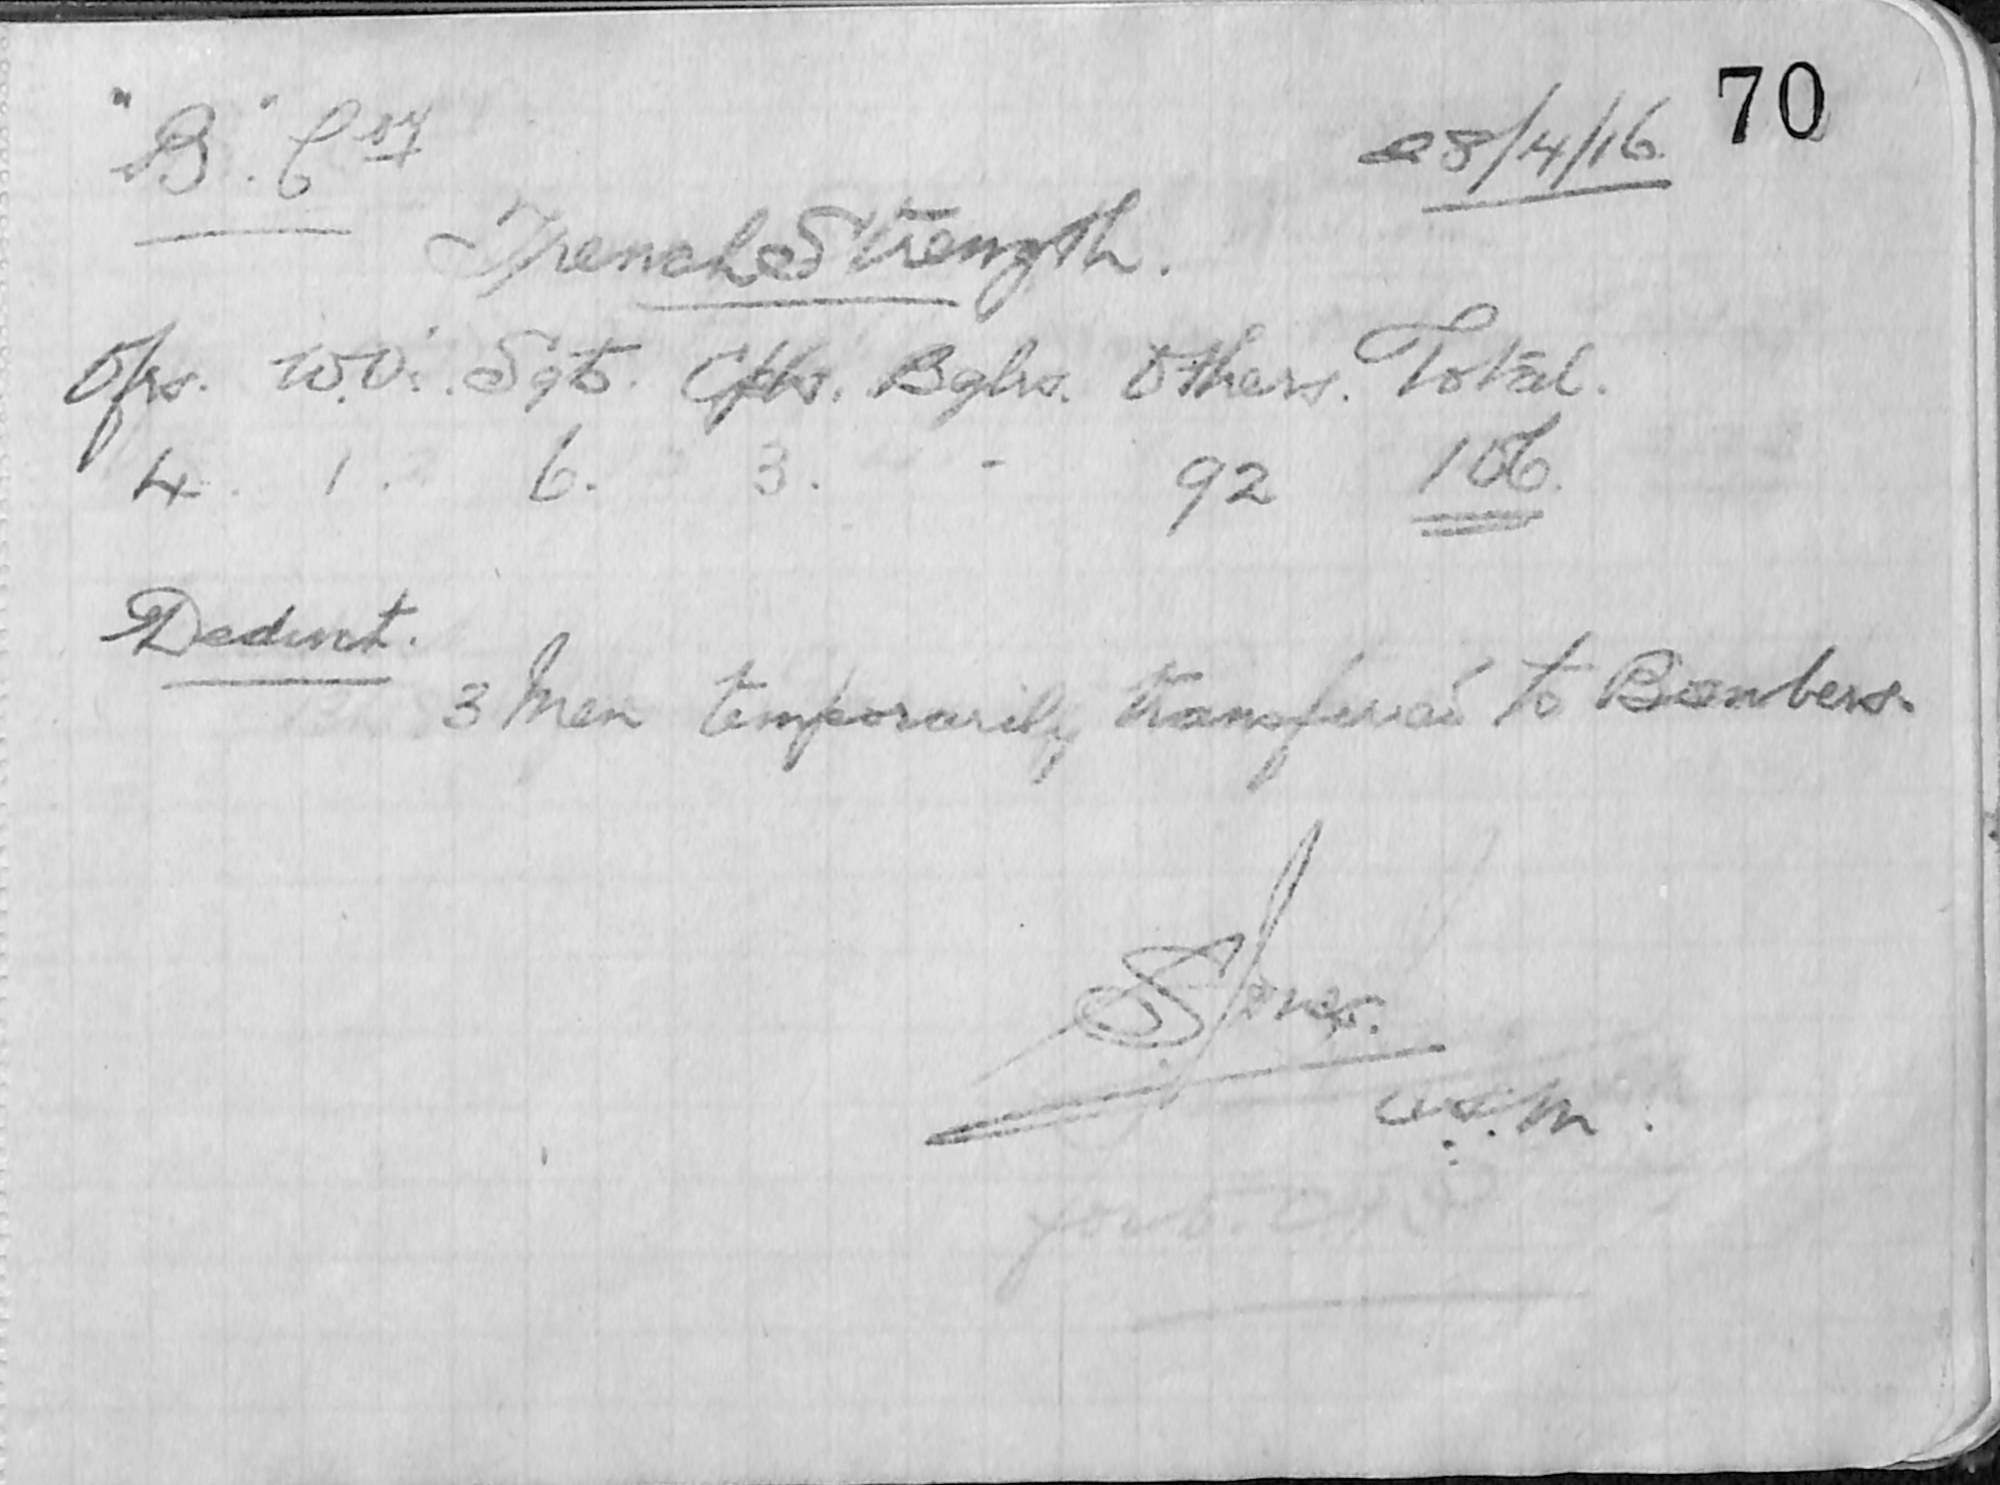 70
"B". Coy 28/4/16.
Trench Strength.
Ofrs. W.O. Sgts. Cpls. Bglrs. Others. Total.
4. 1. 6. 3. - 92 106.
Deduct.
3 Men temporarily transferred to Bombers.
S Jones.
C.S.M.
for O.C.